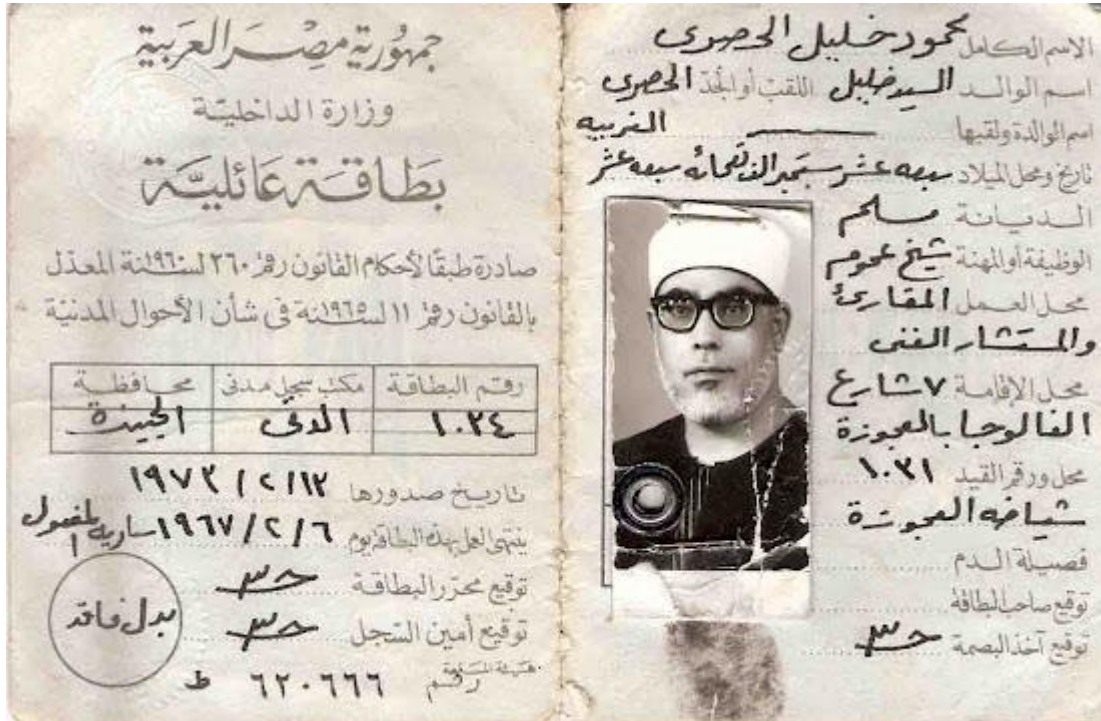 الاسم الكامل محمود خليل الحصرى
اسم الوالد السيد خليل اللقب أو الجد الحصرى
اسم الوالدة ولقبها الغربيه
تاريخ ومحل الميلاد سبعه عشر سبتمبر الف تسعمائه سبعه عشر
الديانة مسلم
الوظيفة أو المهنة شيخ عموم
محل العمل المقارئ
والمستشار الفنى
محل الإقامة ٧ شارع
الفالوجا بالعجوزة
محل ورقم القيد ١٠٣١
شياخه العجوزة
فصيلة الدم
توقيع صاحب البطاقة
توقيع آخذ البصمة
جمهورية مصر العربية
وزارة الداخلية
بطاقة عائلية
صادرة طبقا لأحكام القانون رقم ٢٦٠ لسنة ١٩٦٠ المعدل
بالقانون رقم ١١ لسنة ١٩٦٥ فى شأن الأحوال المدنية
رقم البطاقة مكتب سجل مدنى محافظة
١٠٣٤ الدقى الجيزة
تاريخ صدورها ١٩٧٢/٢/١٣
ينتهى العمل بهذه البطاقة يوم ١٩٦٧/٢/٦ سارية المفعول
توقيع محرر البطاقة
توقيع أمين السجل
بدل فاقد
رقم ٦٢٠٦٦٦ ط